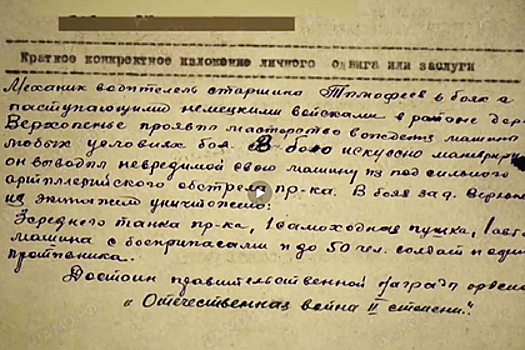 Краткое конкретное изложение личного подвига или заслуги
Механик водитель старшина Тимофеев в боях с
наступающими немецкими войсками в районе дер.
Верхопенье проявил мастерство вождения машины
любых условиях боя. В бою искусно маневрируя
он выводил невредимой свою машину из под сильного
артиллерийского обстрела пр-ка. В боях за д. Верхопе
их экипажем уничтожено:
3 средних танка пр-ка, 1 самоходная пушка, 1 авто
машина с боеприпасами и до 50 чел. солдат и офи
противника.
Достоин правительственной награды орденом
"Отечественная война II степени".